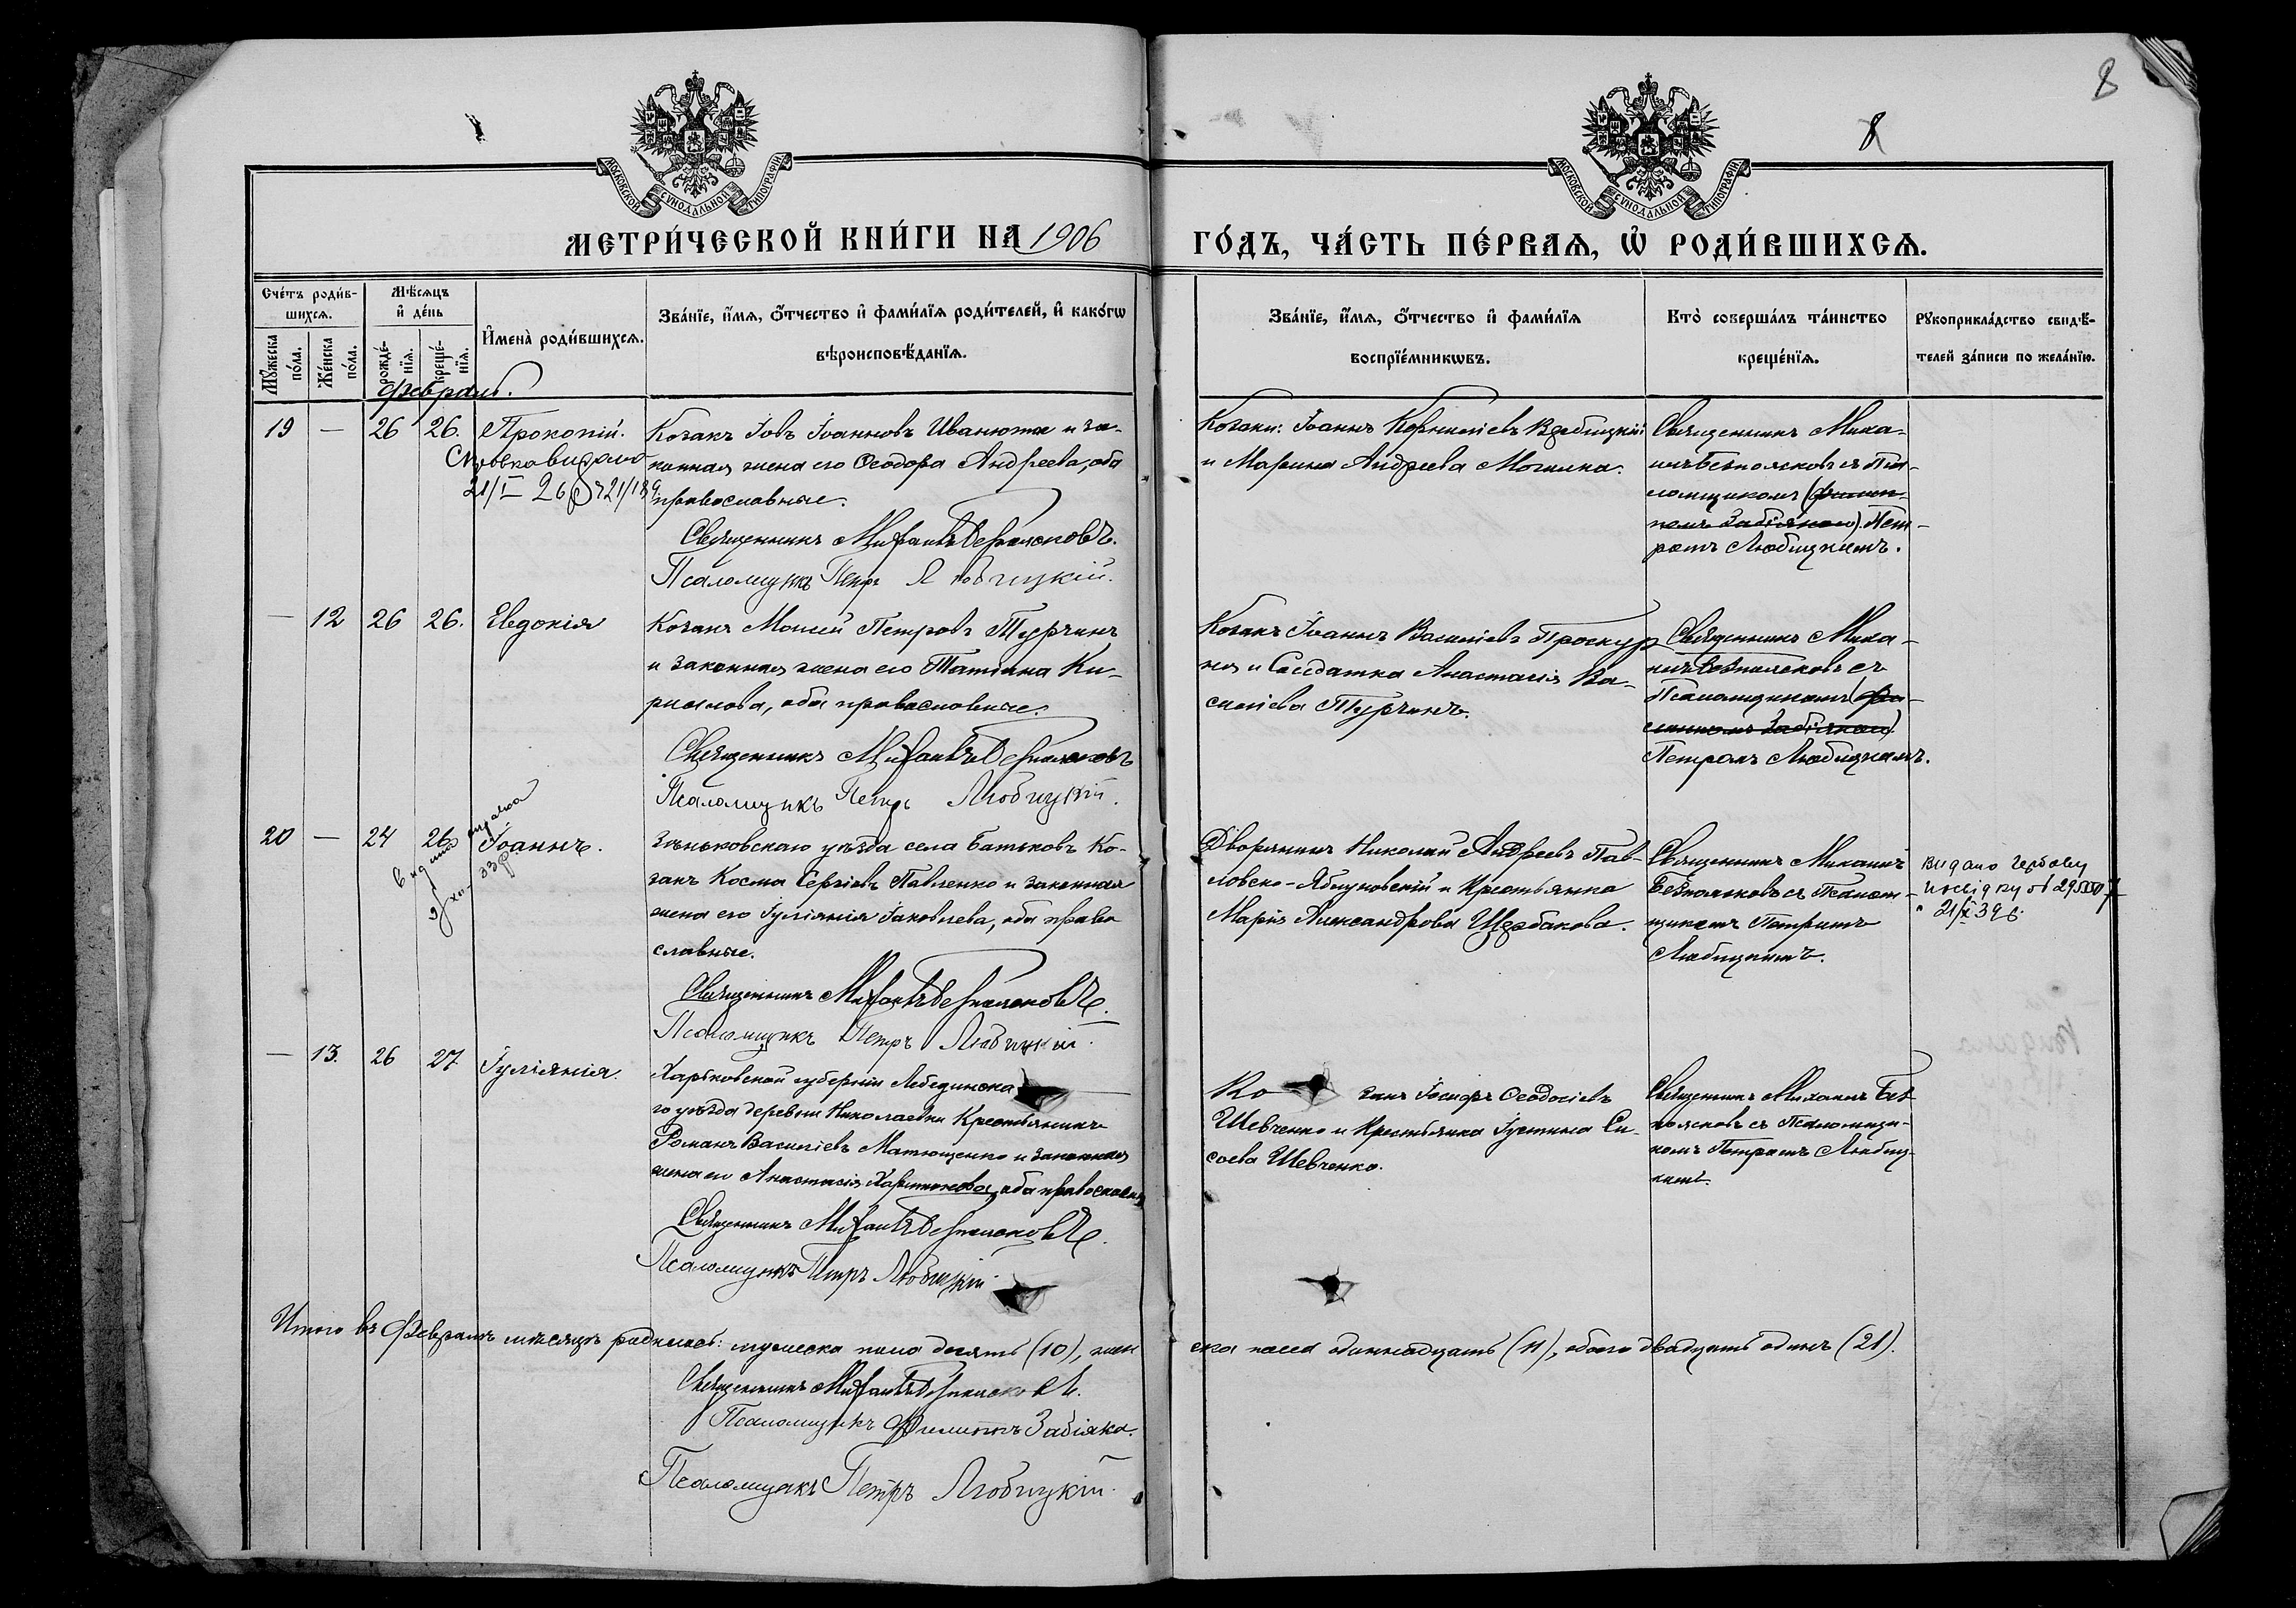 8
8
МОСКОВСКОЙ СѴНОДАЛЬНОЙ ТИПОГРАФІИ
МОСКОВСКОЙ СѴНОДАЛЬНОЙ ТИПОГРАФІИ
МЕТРИ́ЧЕСКОЙ КНИ́ГИ НА 1906
ГО́ДЪ, ЧА́СТЬ ПЕ́РВАѦ, Ѡ҆ РОДИ́ВШИХСѦ.
Сче́тъ роди́в-
шихсѧ.
Мꙋ́жеска
по́ла.
Же́нска
по́ла.
Мѣ́сѧцъ
и҆ де́нь
рожде́-
нїѧ.
креще́-
нїѧ.
И҆мена̀ роди́вшихсѧ.
Зва́нїе, и҆́мѧ, ѻ҆́тчество и҆ фами́лїѧ роди́телей, и҆ како́гѡ
вѣроисповѣ́данїѧ.
Зва́нїе, и҆́мѧ, ѻ҆́тчество и҆ фами́лїѧ
воспрїе́мникѡвъ.
Кто̀ соверша́лъ та́инство
креще́нїѧ.
Рꙋкоприкла́дство свидѣ́-
телей за́писи по жела́нїю.
Февраль.
19 — 26 26. Прокопій.
21/I
Козакъ Іовъ Іоанновъ Иванюта и за-
конная жена его Ѳеодора Андреева, оба
православные.
Священникъ Михаилъ Безпоясковъ.
Псаломщикъ Петръ Любицкій.
Козаки: Іоаннъ Корниліевъ
и Марина Андреева Могилка.
Священникъ Миха-
илъ Безпоясковъ съ Пса-
ломщикомъ (Филип-
помъ Забіякою) Пет-
ромъ Любицкимъ.
— 12 26 26. Евдокія
Козакъ Моисей Петровъ Турчинъ
и законная жена его Татіана Ки-
рилова, оба православные.
Священникъ Михаилъ Безпоясковъ
Псаломщикъ Петръ Любицкій.
Козакъ Іоаннъ Василіевъ Проскур
ня и Солдатка Анастасія Ва-
силіева Турчинъ.
Священникъ Миха-
илъ Безпоясковъ съ
Псаломщикомъ (Фи-
липпомъ Забіякою)
Петромъ Любицкимъ.
20 — 24 26 Іоаннъ.
Зѣньковскаго уѣзда села Батьковъ Ко-
закъ Косма Сергіевъ Павленко и законная
жена его Іуліянія Іаковлева, оба право
славные.
Священникъ Михаилъ Безпоясковъ.
Псаломщикъ Петръ Любицкій.
Дворянинъ Николай Андреевъ Пав-
ловско-Яблуновскій и Крестьянка
Марія Александрова Щербакова.
Священникъ Михаилъ
Безпоясковъ съ Псалом-
щикомъ Петромъ
Любицкимъ.
видано
21/X 39 р.
— 13. 26 27 Іуліянія.
Харьковской губерніи Лебединска
го уѣзда деревни Николаевки Крестьянинъ
Романъ Василіевъ Матющенко и законная
жена его Анастасія Харитонова, оба православн
Священникъ Михаилъ Безпоясковъ.
Псаломщикъ Петръ Любицкій.
Ко закъ Іосифъ Ѳеодосіевъ
Шевченко и Крестьянка Іустина Си-
соева Шевченко.
Священникъ Михаилъ Без
поясковъ съ Псаломщи-
комъ Петромъ Любиц-
кимъ.
Итого въ Февралѣ мѣсяцѣ родилось: мужеска пола десять (10), жен
ска пола одиннадцать (11), обоего двадцать одинъ (21).
Священникъ Михаилъ Безпоясковъ.
Псаломщикъ Филиппъ Забіяка.
Псаломщикъ Петръ Любицкій.